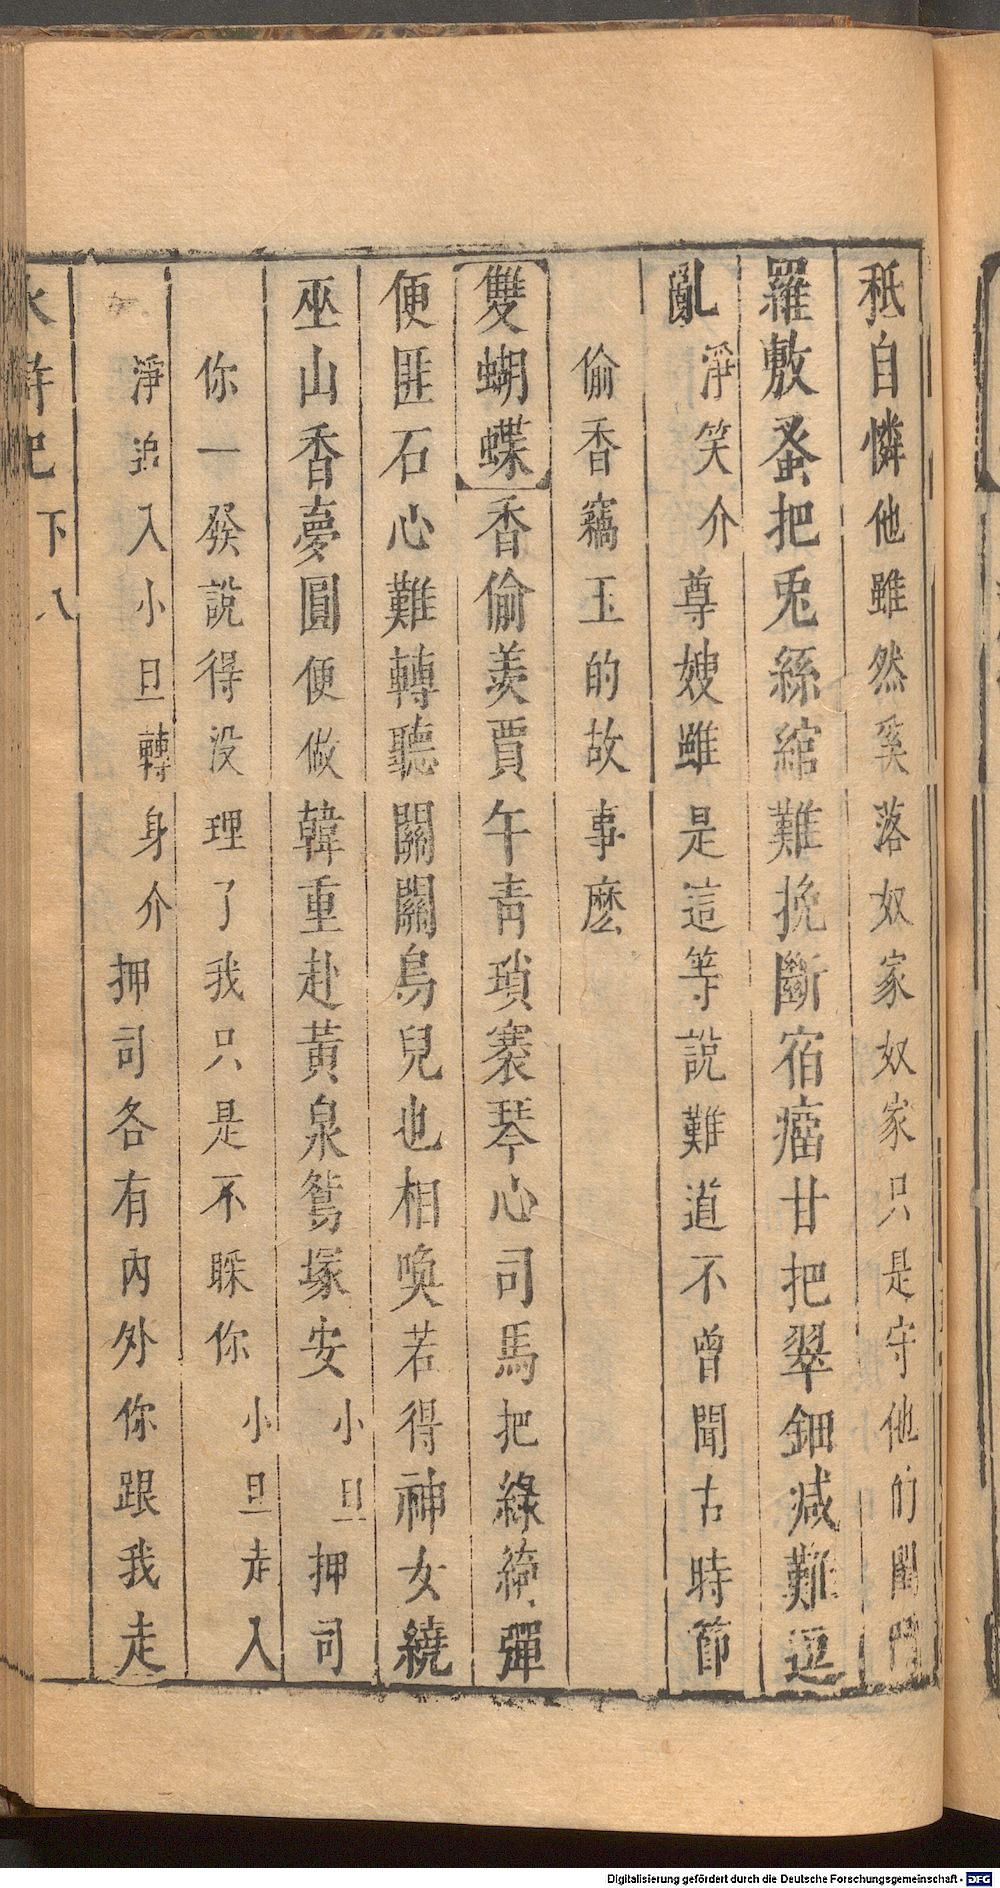 秪自憐他雖然奚落奴家奴家只是守他的閨門
羅敷蚤把兎絲綰難挽斷宿瘤甘把翠鈿減難逗
亂淨笑介尊嫂雖是這等說難道不曾聞古時節
偷香竊玉的故事麽
雙蝴蝶香偷羡賈午青瑣褰琴心司馬把綠綺彈
便匪石心難轉聽關關鳥兒也相喚若得神女繞
巫山香夢圓便做韓重赴黃泉鴛塚安小旦押司
你一發說得没理了我只是不睬你小旦走入
淨追入小旦轉身介押司各有內外你跟我走
水滸記 下 八
Digitalisierung gefördert durch die Deutsche Forschungsgemeinschaft - DFG